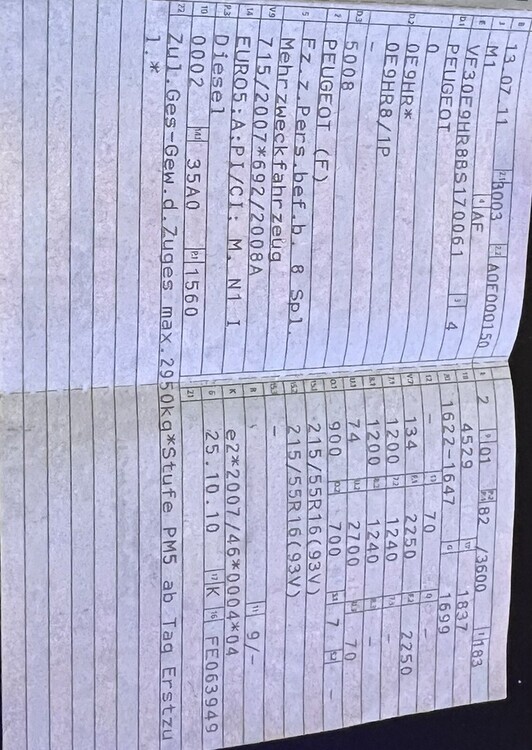 B 13.07.11 2.1 3003 2.2 A0E000150
J M1 4 AF
E VF30E9HR8BS170061 3 4
D.1 PEUGEOT
0
D.2 0E9HR*
0E9HR8/1P
-
D.3 5008
2 PEUGEOT (F)
5 Fz.z.Pers.bef.b. 8 Spl.
Mehrzweckfahrzeug
V.9 715/2007*692/2008A
14 EURO5;A;PI/CI; M, N1 I
P.3 Diesel
10 0002 14.1 35A0 P.1 1560
L 2 9 01 P.2/P.4 82 /3600 T 183
18 4529 19 1837
20 1622-1647 G 1699
12 - 13 70 Q -
V.7 134 F.1 2250 F.2 2250
7.1 1200 7.2 1240 7.3 -
8.1 1200 8.2 1240 8.3 -
U.1 74 U.2 2700 U.3 70
O.1 900 O.2 700 S.1 7 S.2 -
15.1 215/55R16(93V)
15.2 215/55R16(93V)
15.3 -
R 11 9/-
K e2*2007/46*0004*04
6 25.10.10 17 K 16 FE063949
21
22 Zul.Ges-Gew.d.Zuges max.2950kg*Stufe PM5 ab Tag Erstzu
l.*